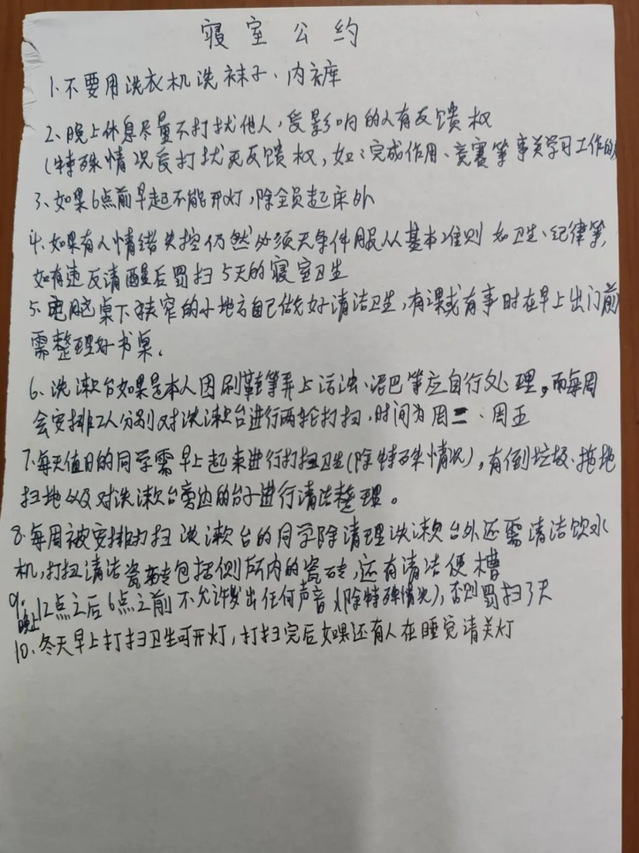 寝室公约
1.不要用洗衣机洗袜子、内裤
2.晚上休息尽量不打扰他人,受影响的人有反馈权
(特殊情况受打扰无反馈权,如:完成作用、竞赛等事关学习工作的
3.如果6点前早起不能开灯,除全员起床外
4.如果有人情绪失控仍然必须无条件服从基本准则如卫生、纪律等,
如有违反清醒后罚扫5天的寝室卫生
5.电脑桌下狭窄的小地方自己做好清洁卫生,有课或有事时在早上出门前
需整理好书桌.
6.洗漱台如果是本人因刷鞋等弄上污浊、泥巴等应自行处理,而每周
会安排2人分别对洗漱台进行两轮打扫.时间为周二、周五
7.每天值日的同学需早上起来进行打扫卫生(除特殊情况),有倒垃圾、拖地
扫地以及对洗漱台旁边的台子进行清洁整理。
8.每周被安排打扫洗漱台的同学除清理洗漱台外还需清洁饮水
机,打扫清洁瓷砖包括侧所内的瓷砖,还有清洁便槽
9.晚上12点之后6点之前不允许发出任何声音(除特殊情况),否则罚扫3天
10.冬天早上打扫卫生可开灯,打扫完后如果还有人在睡觉请关灯